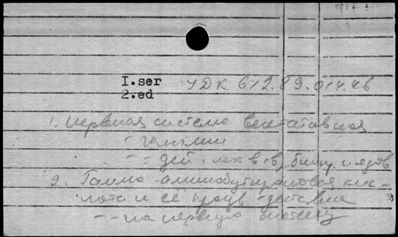 I.ser УДК 612.89.014.46
2.ed
1. Нервная система вегетативная
- ганглии
-- дейст. лек в-в, биол. и ядов
2. Гамма-аминобутировая кис-
лота и её произв - действие
-- на нервную систему